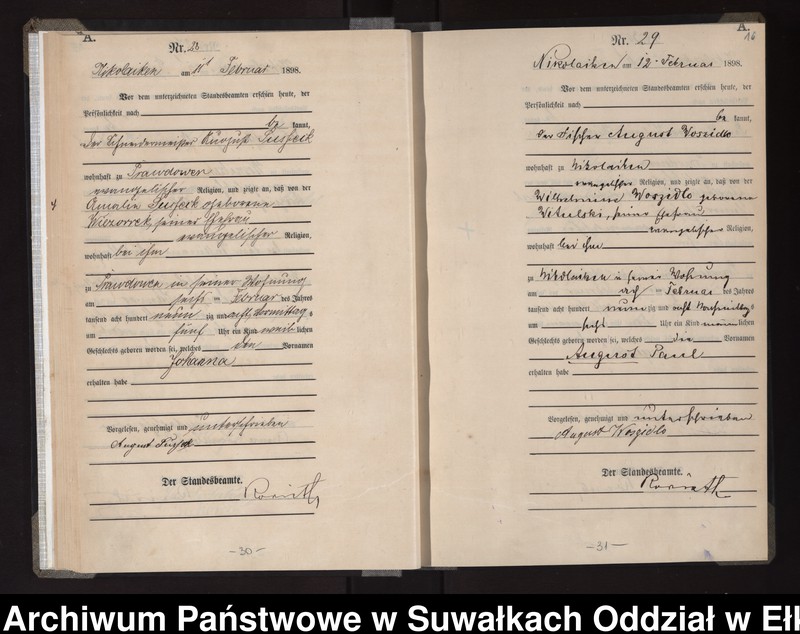 A.
Nr. 28
Nikolaiken am 11 Februar 1898.
Vor dem unterzeichneten Standesbeamten erschien heute, der
Persönlichkeit nach
be kannt,
der Schneidermeister August
wohnhaft zu
evangelischer Religion, und zeigte an, daß von der
Amalie geborene
Wiezorrek, seiner Ehefrau
evangelischer Religion,
wohnhaft bei ihm
zu in seiner Wohnung
am sechs ten Februar des Jahres
tausend acht hundert neun zig und acht Vormittag s
um fünf Uhr ein Kind weib lichen
Geschlechts geboren worden sei, welches den Vornamen
Johanna
erhalten habe
Vorgelesen, genehmigt und unterschrieben
August
Der Standesbeamte.
– 30 –
A.
16
Nr. 29
Nikolaiken am 12. Februar 1898.
Vor dem unterzeichneten Standesbeamten erschien heute, der
Persönlichkeit nach
be kannt,
der Fischer August Woszidlo
wohnhaft zu Nikolaiken
evangelischer Religion, und zeigte an, daß von der
Wilhelmine Woszidlo geborene
Witulski, seiner Ehefrau
evangelischer Religion,
wohnhaft bei ihm
zu Nikolaiken in seiner Wohnung
am ten Februar des Jahres
tausend acht hundert neun zig und acht Nachmittag s
um Uhr ein Kind männ lichen
Geschlechts geboren worden sei, welches die Vornamen
August Paul
erhalten habe
Vorgelesen, genehmigt und unterschrieben
August Woszidlo
Der Standesbeamte.
– 31 –
Archiwum Państwowe w Suwałkach Oddział w Ełk